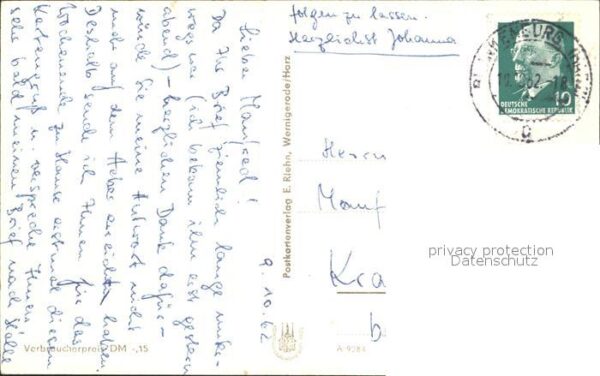 9.10.62
Lieber Manfred!
Da Ihr Brief ziemlich lange unter-
wegs war (ich bekam ihn erst gestern
abend) – herzlichen Dank dafür –
würde Sie meine Antwort nicht
mehr auf dem Harz erreicht haben.
Deshalb sende ich Ihnen für das
Wochenende zu Hause erstmal diesen
Kartengruß u. verspreche Ihnen,
sehr bald meinen Brief nach Halle
folgen zu lassen.
Herzlichst Johanna
Postkartenverlag E. Riehn, Wernigerode/Harz
Verbraucherpreis DM -,15
A 9284
DEUTSCHE
DEMOKRATISCHE REPUBLIK
10
Herrn
Manf
Kra
b
privacy protection
Datenschutz